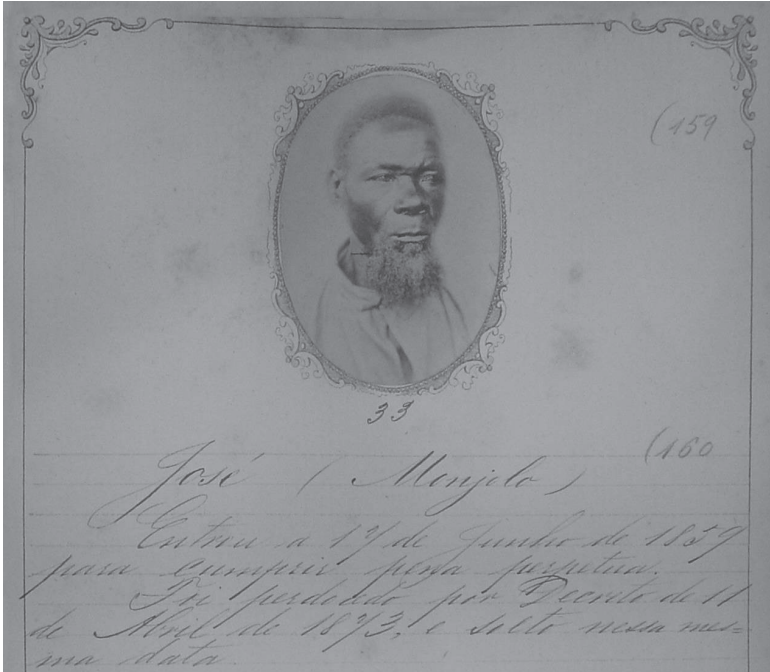 (159
33
(160
José (Monjolo)
Entrou a 17 de Junho de 1859
para cumprir pena perpetua.
Foi perdoado por Decreto de 11
de Abril de 1873, e solto nessa mes=
ma data.